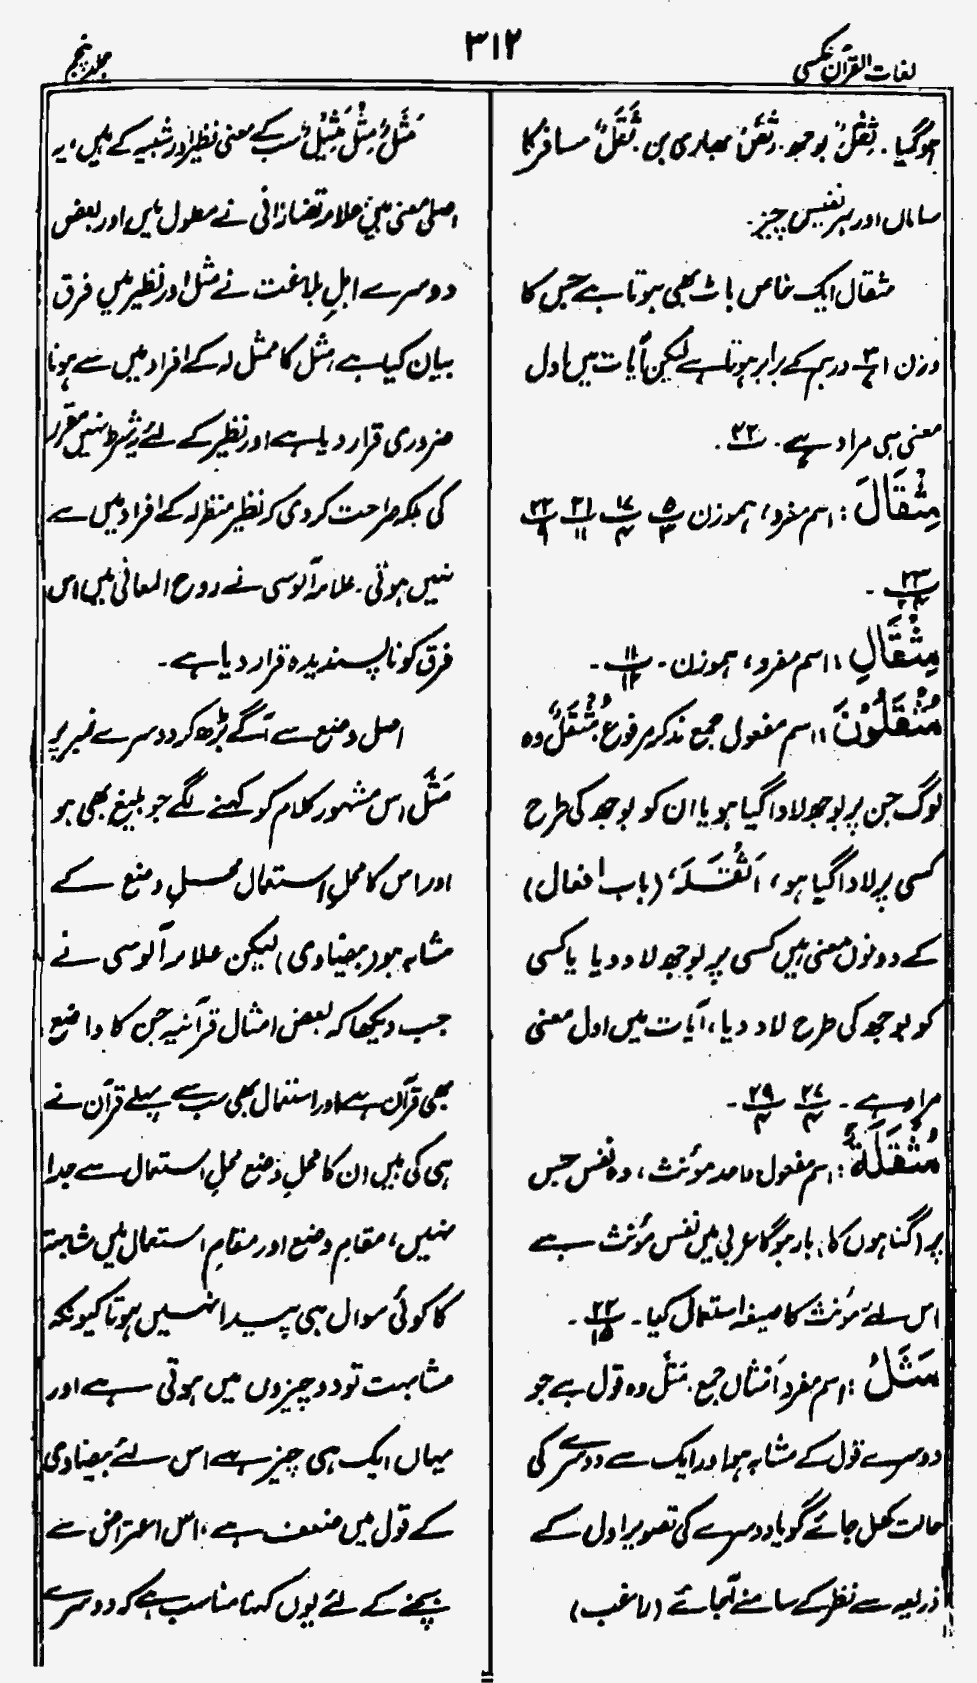 لغات القرآن عکسی
۳۱۲
جلد پنجم
ہوگیا۔ ثِقْلٌ بوجھ۔ ثِقَلٌ بھاری پن ثَقَلٌ مسافر کا
سامان اور ہر نفیس چیز۔
مثقال ایک خاص باٹ بھی ہوتا ہے جس کا
وزن ۱ ۳/۷ درہم کے برابر ہوتا ہے لیکن آیات میں اول
معنی ہی مراد ہے۔ ۲۲۔
مِثْقَالَ : اسم مفرد، ہموزن ۵/۳ ۱۷/۴ ۲۱/۱۱ ۲۲/۹
۔
مِثْقَالِ : اسم مفرد، ہموزن۔ ۱۱/۱۲۔
مُثْقَلُوْنَ : اسم مفعول جمع مذکر مرفوع مُثْقَلٌ وہ
لوگ جن پر بوجھ لادا گیا ہو یا ان کو بوجھ کی طرح
کسی پر لادا گیا ہو، اَثْقَلَہٗ (باب افعال)
کے دونوں معنی ہیں کسی پر بوجھ لاد دیا یا کسی
کو بوجھ کی طرح لاد دیا، آیات میں اول معنی
مراد ہے۔ ۲۷/۴ ۲۹/۴۔
مُثْقَلَةٌ : اسم مفعول واحد مؤنث، وہ نفس جس
پر (گناہوں کا) بار ہوگا عربی میں نفس مؤنث ہے
اس لئے مؤنث کا صیغہ استعمال کیا۔ ۲۲/۱۵۔
مَثَلُ : اسم مفرد اَمْثَال جمع۔ مَثَل وہ قول ہے جو
دوسرے قول کے مشابہ ہو اور ایک سے دوسرے کی
حالت کھل جائے گویا دوسرے کی تصویر اول کے
ذریعہ سے نظر کے سامنے آجائے (راغب)
مَثَلٌ مِثْلٌ مَثِیْلٌ سب کے معنی نظیر اور شبیہ کے ہیں، یہ
اصلی معنی ہیں علامہ تفتازانی نے مطول میں اور بعض
دوسرے اہلِ بلاغت نے مثل اور نظیر میں فرق
بیان کیا ہے مثل کا ممثل لہ کے افراد میں سے ہونا
ضروری قرار دیا ہے اور نظیر کے لئے یہ شرط نہیں مقرر
کی بلکہ صراحت کردی کہ نظیر منظر لہ کے افراد میں سے
نہیں ہوتی۔ علامہ آلوسی نے روح المعانی میں اس
فرق کو ناپسندیدہ قرار دیا ہے۔
اصل وضع سے آگے بڑھ کر دوسرے نمبر پر
مَثَل اس مشہور کلام کو کہنے لگے جو بلیغ بھی ہو
اور اس کا محلِ استعمال محلِ وضع کے
مشابہ ہو (بیضاوی) لیکن علامہ آلوسی نے
جب دیکھا کہ بعض امثال قرآنیہ جن کا واضع
بھی قرآن ہے اور استعمال بھی سب سے پہلے قرآن نے
ہی کی ہیں ان کا محلِ وضع محلِ استعمال سے جدا
نہیں، مقامِ وضع اور مقامِ استعمال میں مشابہتہ
کا کوئی سوال ہی پیدا نہیں ہوتا کیونکہ
مشابہت تو دو چیزوں میں ہوتی ہے اور
یہاں ایک ہی چیز ہے اس لئے بیضاوی
کے قول میں ضعف ہے، اس اعتراض سے
بچنے کے لئے یوں کہنا مناسب ہے کہ دوسرے